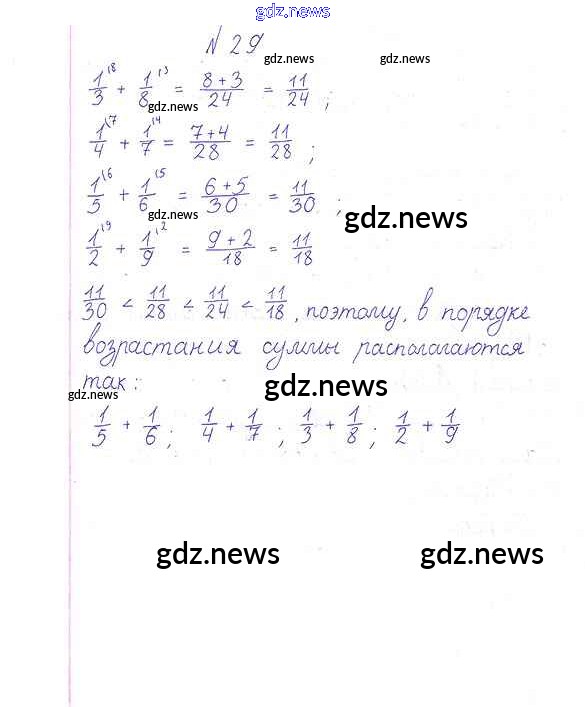 gdz.news
N 29
gdz.news gdz.news
1/3 \8 + 1/8 \3 = (8+3)/24 = 11/24 ;
gdz.news
1/4 \7 + 1/7 \4 = (7+4)/28 = 11/28 ;
1/5 \6 + 1/6 \5 = (6+5)/30 = 11/30 ;
gdz.news gdz.news
1/2 \9 + 1/9 \2 = (9+2)/18 = 11/18
11/30 < 11/28 < 11/24 < 11/18, поэтому, в порядке
возрастания суммы располагаются
так:
gdz.news gdz.news
1/5 + 1/6 ; 1/4 + 1/7 ; 1/3 + 1/8 ; 1/2 + 1/9
gdz.news gdz.news